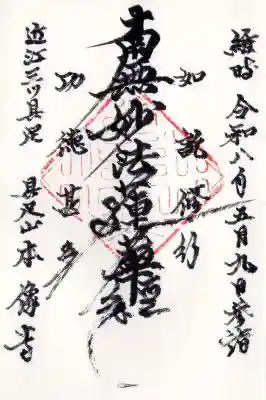 維時 令和八年五月九日参詣
如説修行
南無妙法蓮華経
功徳甚多
近江三ツ具足 具足山本像寺